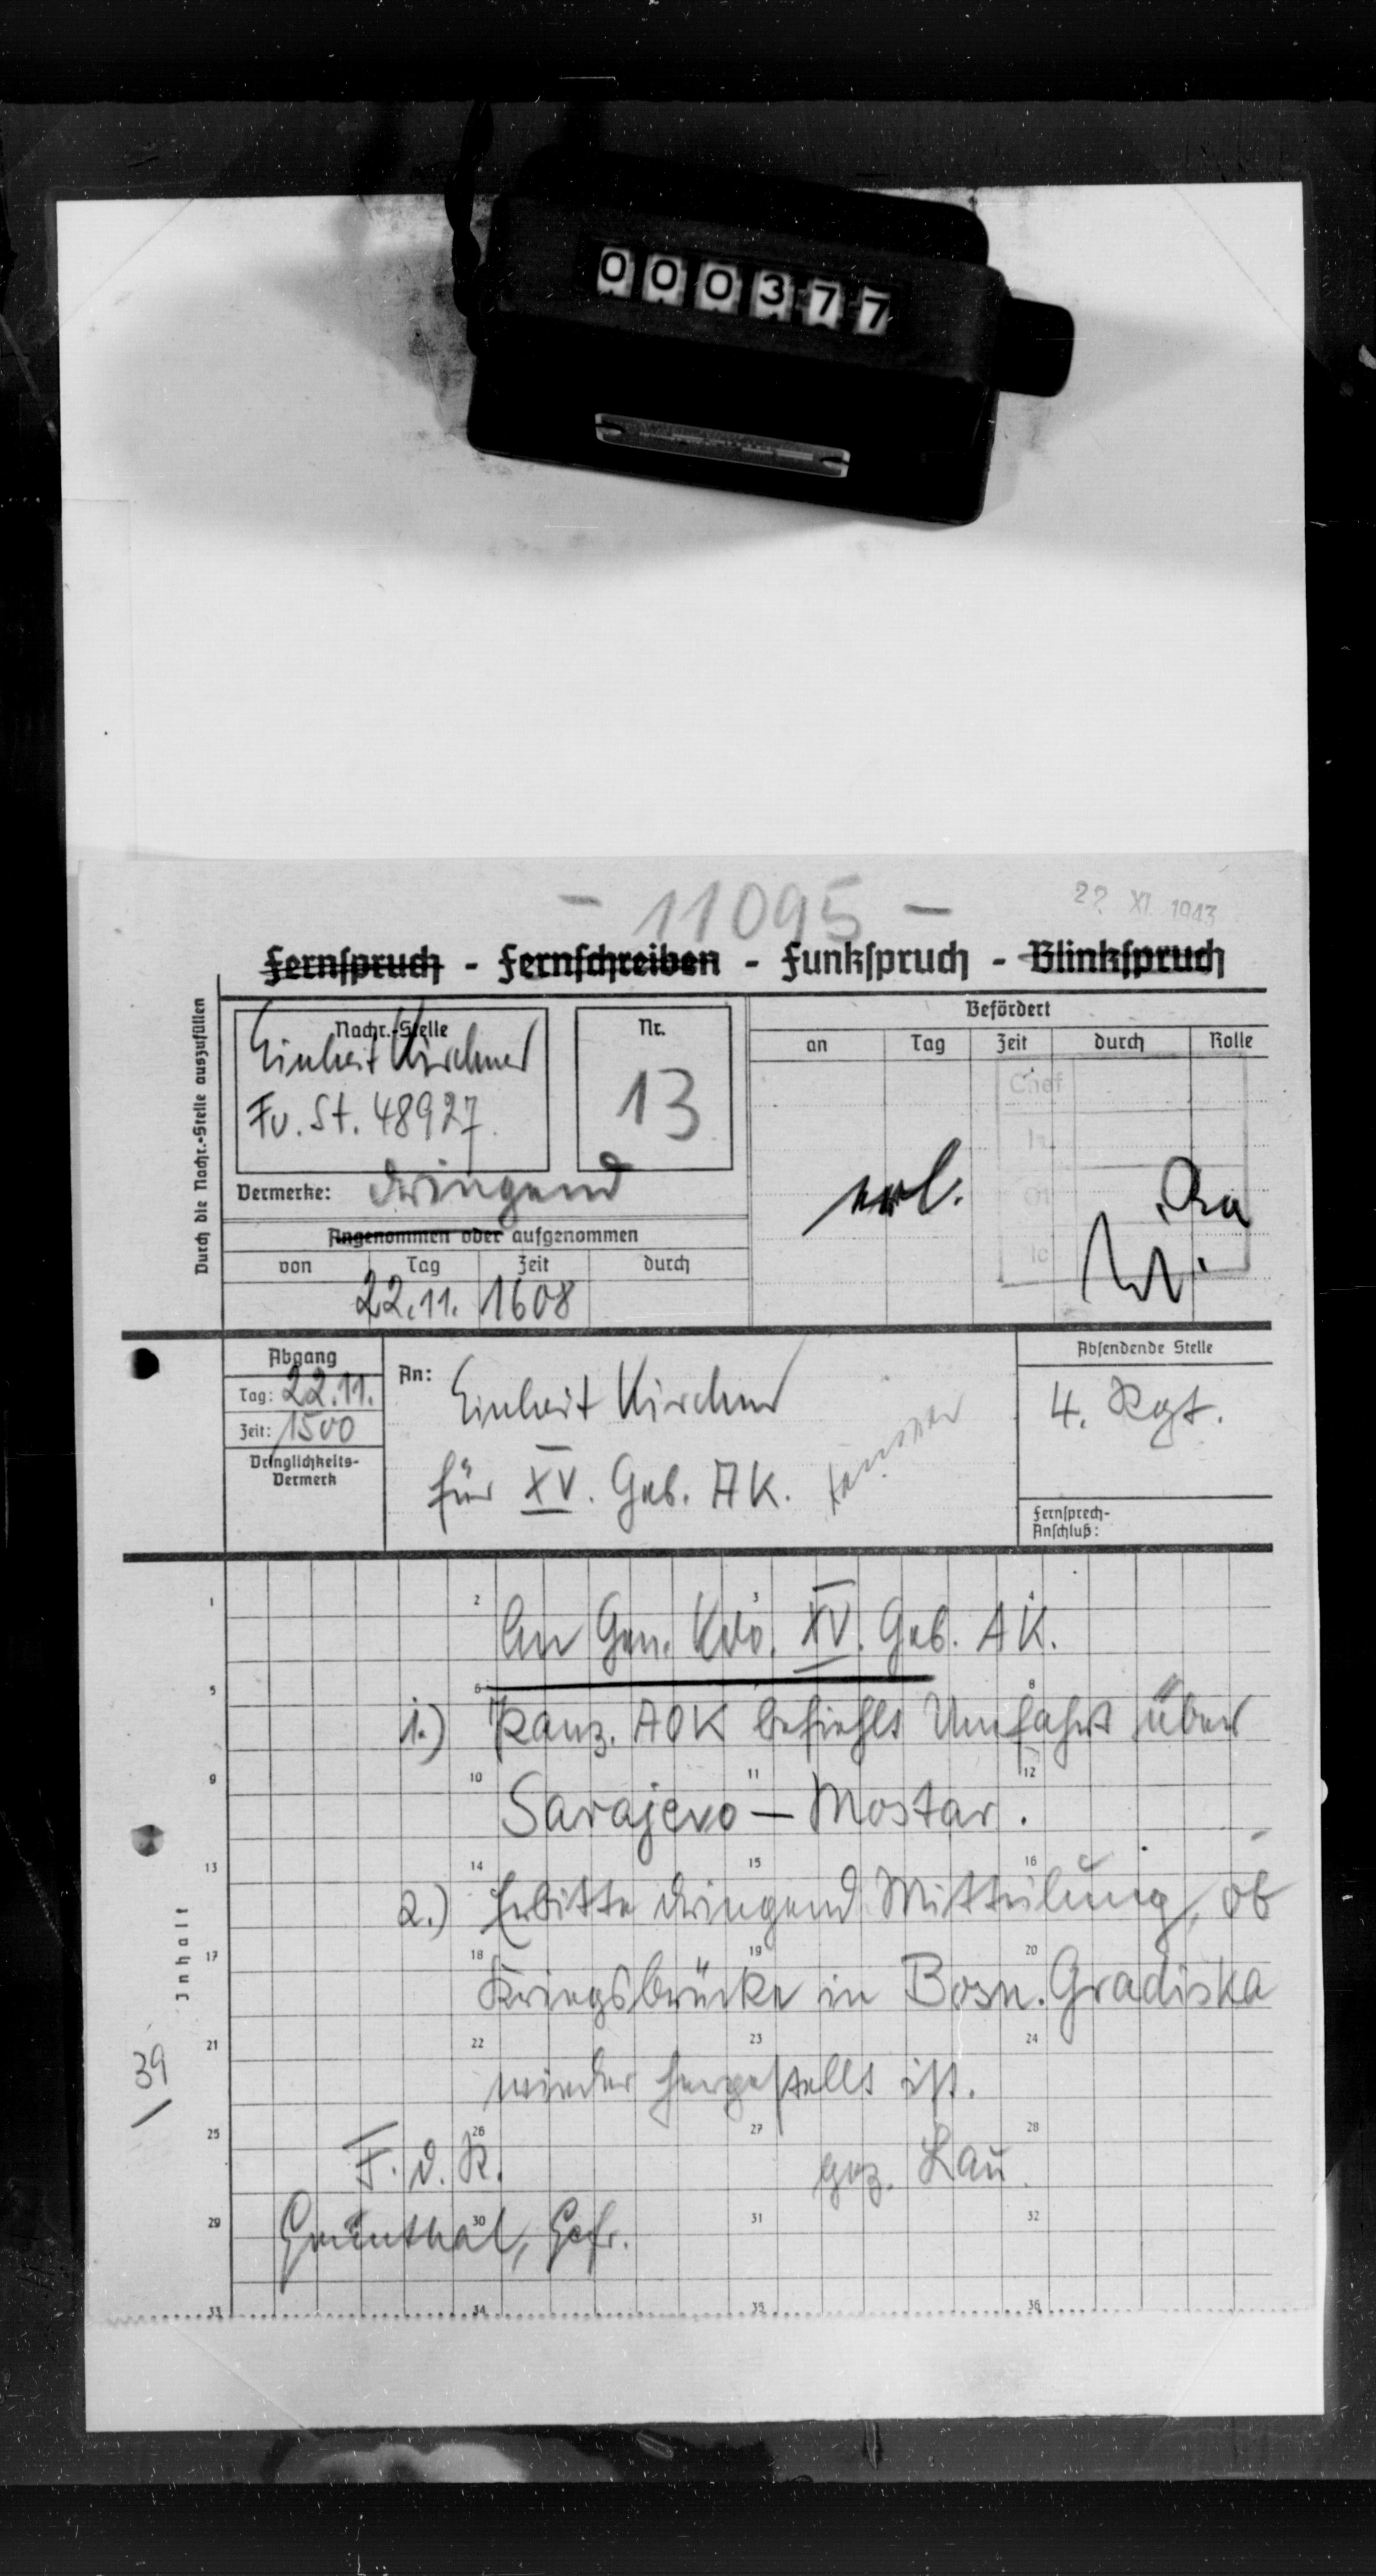 000377
- 11095 -
22 XI 1943
Fernspruch - Fernschreiben - Funkspruch - Blinkspruch
Durch die Nachr.-Stelle auszufüllen
Nachr.-Stelle
Einheit Kirchner
Fu. St. 48927.
Nr.
13
Befördert
an Tag Zeit durch Rolle
Chef
Ia
O1
Ic
erl.
Vermerke: dringend
Angenommen oder aufgenommen
von Tag Zeit durch
22.11. 1608
Abgang
Tag: 22.11.
Zeit: 1500
Dringlichkeits-
Vermerk
An: Einheit Kirchner
für XV. Geb. AK.
Absendende Stelle
4. Rgt.
Fernsprech-
Anschluß:
Inhalt
1 2 3 4
An Gen. Kdo. XV. Geb. AK.
5 6 8
1.) Panz. AOK befiehlt Umfahrt über
9 10 11 12
Sarajevo – Mostar.
13 14 15 16
2.) Erbitte dringend Mitteilung, ob
17 18 19 20
Kriegsbrücke in Bosn. Gradiska
21 22 23 24
wieder hergestellt ist.
39
25 26 27 28
F. d. R. gez. Lau
29 30 31 32
Grünthal, Gefr.
33 34 35 36